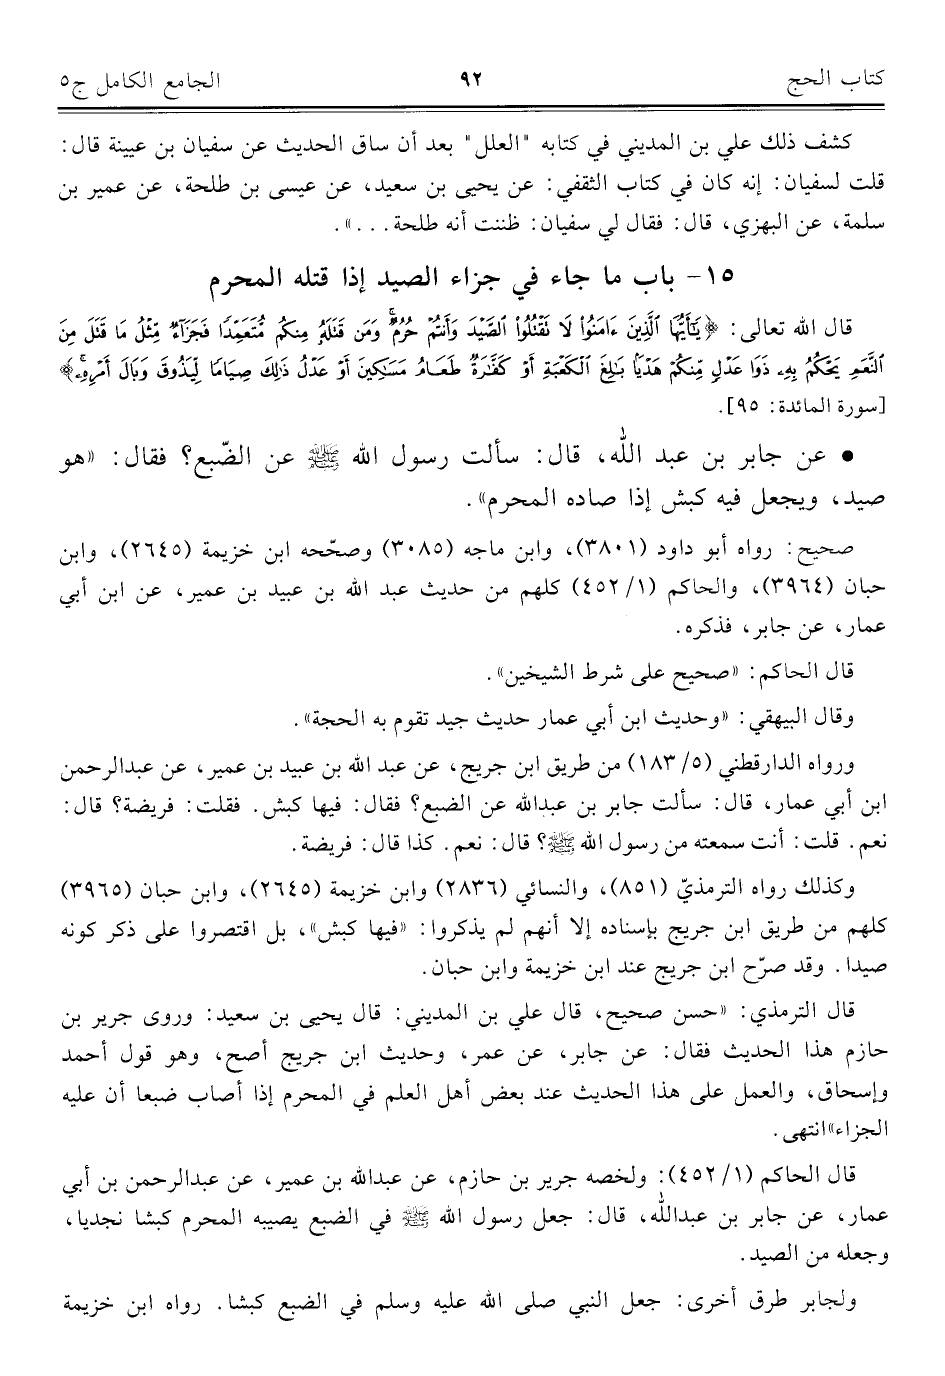 كتاب الحج ٩٢ الجامع الكامل ج٥
كشف ذلك علي بن المديني في كتابه "العلل" بعد أن ساق الحديث عن سفيان بن عيينة قال:
قلت لسفيان: إنه كان في كتاب الثقفي: عن يحيى بن سعيد، عن عيسى بن طلحة، عن عمير بن
سلمة، عن البهزي، قال: فقال لي سفيان: ظننت أنه طلحة...».
١٥- باب ما جاء في جزاء الصيد إذا قتله المحرم
قال الله تعالى: ﴿يَٰٓأَيُّهَا ٱلَّذِينَ ءَامَنُواْ لَا تَقۡتُلُواْ ٱلصَّيۡدَ وَأَنتُمۡ حُرُمٞۚ وَمَن قَتَلَهُۥ مِنكُم مُّتَعَمِّدٗا فَجَزَآءٞ مِّثۡلُ مَا قَتَلَ مِنَ
ٱلنَّعَمِ يَحۡكُمُ بِهِۦ ذَوَا عَدۡلٖ مِّنكُمۡ هَدۡيَۢا بَٰلِغَ ٱلۡكَعۡبَةِ أَوۡ كَفَّٰرَةٞ طَعَامُ مَسَٰكِينَ أَوۡ عَدۡلُ ذَٰلِكَ صِيَامٗا لِّيَذُوقَ وَبَالَ أَمۡرِهِۦۚ﴾
[سورة المائدة: ٩٥].
• عن جابر بن عبد الله، قال: سألت رسول الله ﷺ عن الضّبع؟ فقال: «هو
صيد، ويجعل فيه كبش إذا صاده المحرم».
صحيح: رواه أبو داود (٣٨٠١)، وابن ماجه (٣٠٨٥) وصحّحه ابن خزيمة (٢٦٤٥)، وابن
حبان (٣٩٦٤)، والحاكم (١/ ٤٥٢) كلهم من حديث عبد الله بن عبيد بن عمير، عن ابن أبي
عمار، عن جابر، فذكره.
قال الحاكم: «صحيح على شرط الشيخين».
وقال البيهقي: «وحديث ابن أبي عمار حديث جيد تقوم به الحجة».
ورواه الدارقطني (٥/ ١٨٣) من طريق ابن جريج، عن عبد الله بن عبيد بن عمير، عن عبدالرحمن
ابن أبي عمار، قال: سألت جابر بن عبدالله عن الضبع؟ فقال: فيها كبش. فقلت: فريضة؟ قال:
نعم. قلت: أنت سمعته من رسول الله ﷺ؟ قال: نعم. كذا قال: فريضة.
وكذلك رواه الترمذيّ (٨٥١)، والنسائي (٢٨٣٦) وابن خزيمة (٢٦٤٥)، وابن حبان (٣٩٦٥)
كلهم من طريق ابن جريج بإسناده إلا أنهم لم يذكروا: «فيها كبش»، بل اقتصروا على ذكر كونه
صيدا. وقد صرّح ابن جريج عند ابن خزيمة وابن حبان.
قال الترمذي: «حسن صحيح، قال علي بن المديني: قال يحيى بن سعيد: وروى جرير بن
حازم هذا الحديث فقال: عن جابر، عن عمر، وحديث ابن جريج أصح، وهو قول أحمد
وإسحاق، والعمل على هذا الحديث عند بعض أهل العلم في المحرم إذا أصاب ضبعا أن عليه
الجزاء»انتهى.
قال الحاكم (١/ ٤٥٢): ولخصه جرير بن حازم، عن عبدالله بن عمير، عن عبدالرحمن بن أبي
عمار، عن جابر بن عبدالله، قال: جعل رسول الله ﷺ في الضبع يصيبه المحرم كبشا نجديا،
وجعله من الصيد.
ولجابر طرق أخرى: جعل النبي صلى الله عليه وسلم في الضبع كبشا. رواه ابن خزيمة